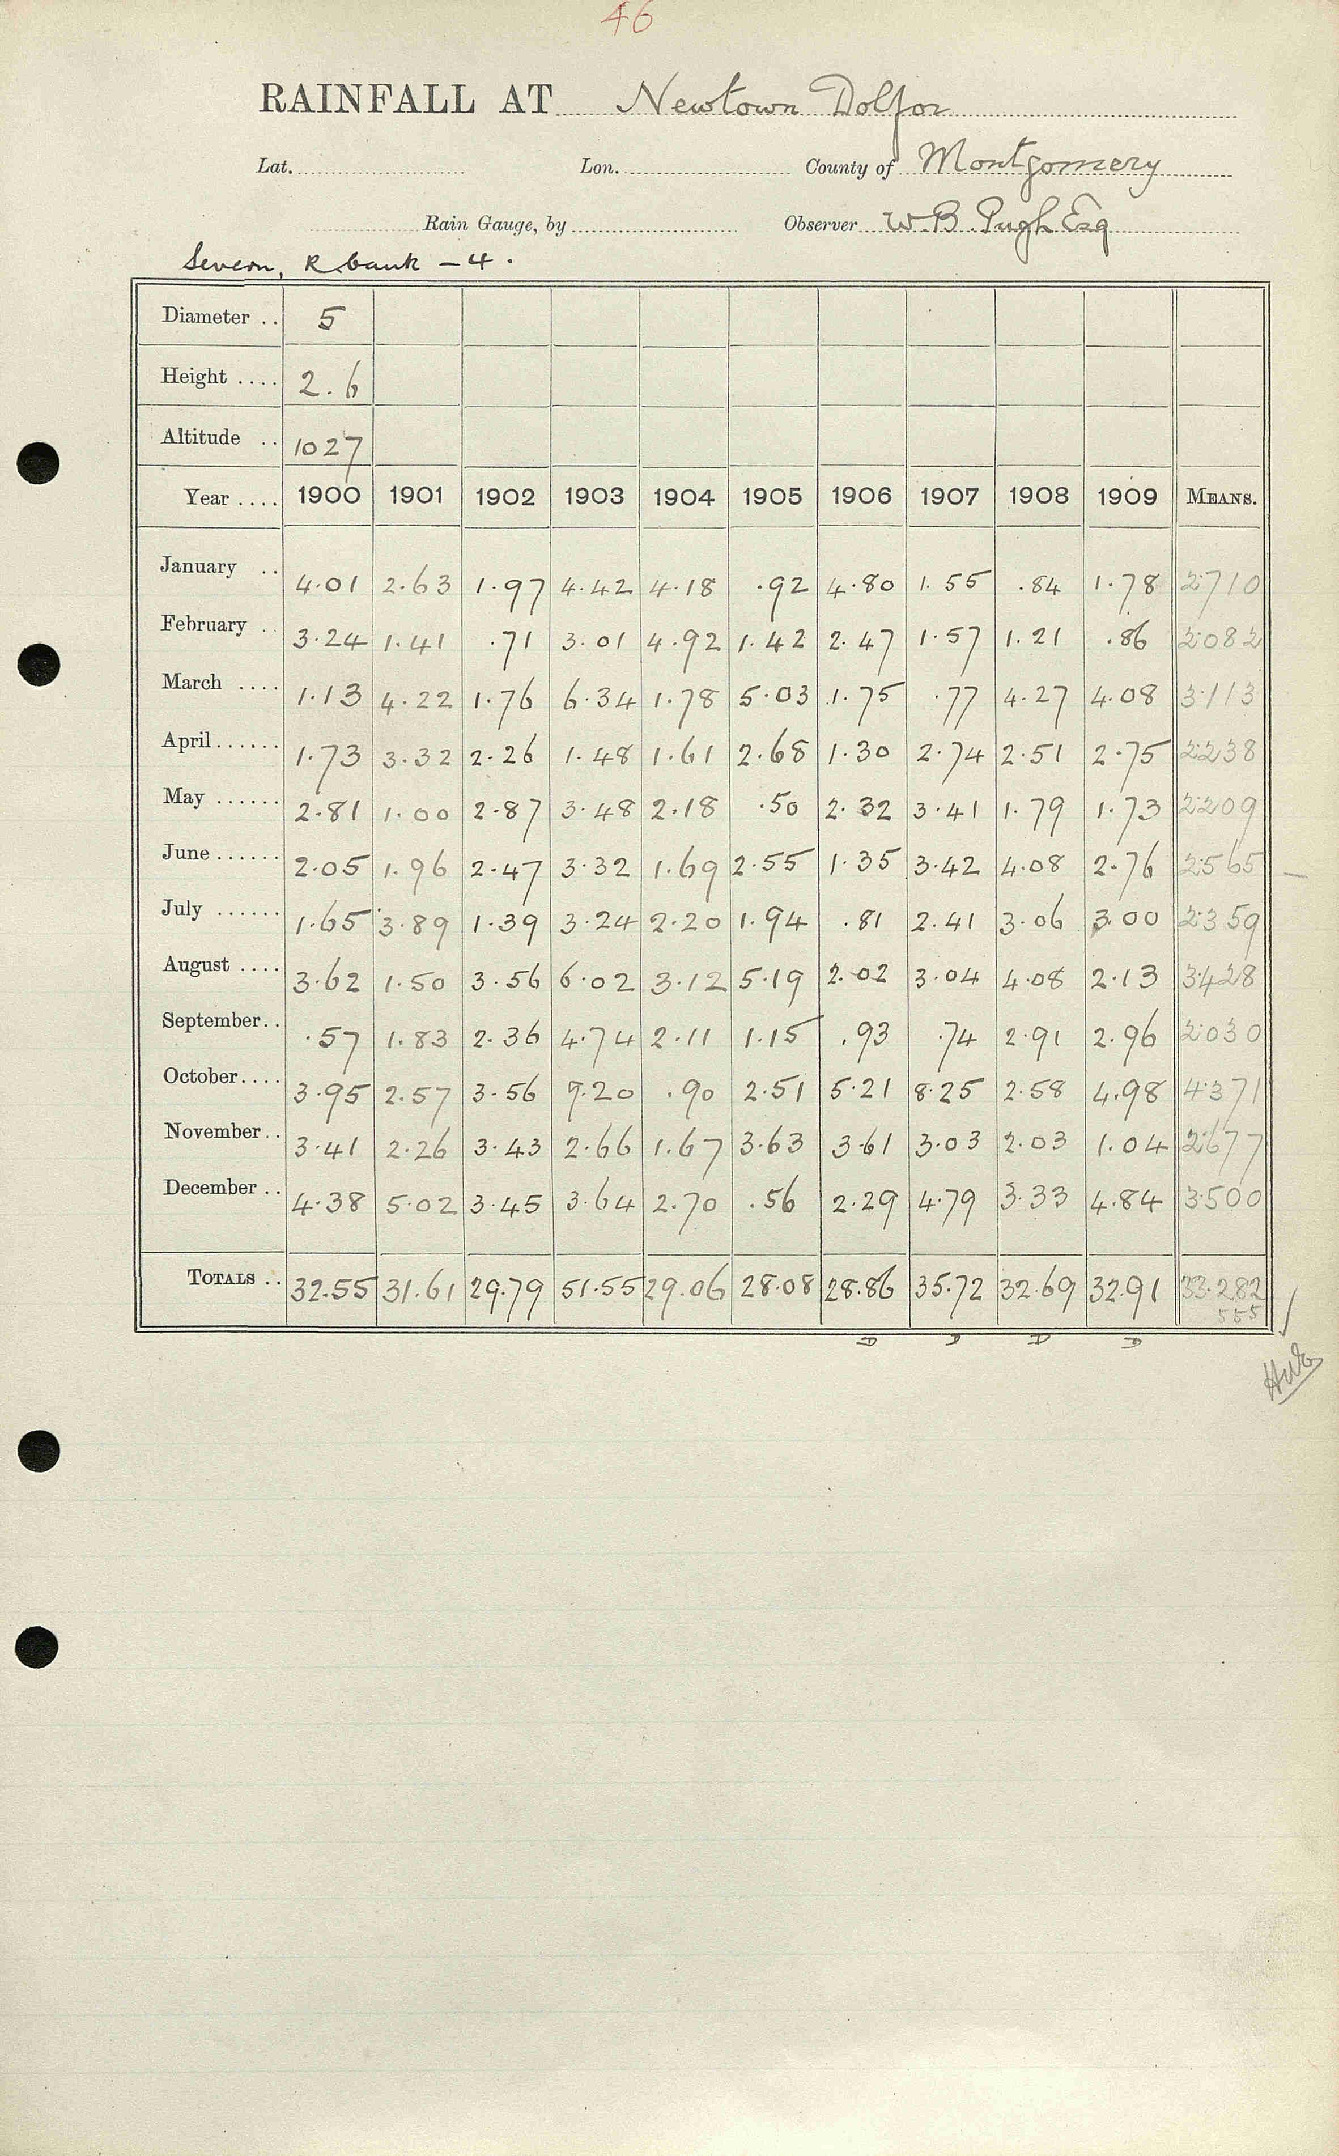 46
RAINFALL AT Newtown Dolfor
Lat. Lon. County of Montgomery
Rain Gauge, by Observer W. B. Pugh Esq
Severn, R bank - 4.
Diameter .. 5
Height .... 2.6
Altitude .. 1027
Year .... 1900 1901 1902 1903 1904 1905 1906 1907 1908 1909 MEANS.
January .. 4.01 2.63 1.97 4.42 4.18 .92 4.80 1.55 .84 1.78 2.710
February .. 3.24 1.41 .71 3.01 4.92 1.42 2.47 1.57 1.21 .86 2.082
March .... 1.13 4.22 1.76 6.34 1.78 5.03 1.75 .77 4.27 4.08 3.113
April...... 1.73 3.32 2.26 1.48 1.61 2.68 1.30 2.74 2.51 2.75 2.238
May ...... 2.81 1.00 2.87 3.48 2.18 .50 2.32 3.41 1.79 1.73 2.209
June...... 2.05 1.96 2.47 3.32 1.69 2.55 1.35 3.42 4.08 2.76 2.565
July ...... 1.65 3.89 1.39 3.24 2.20 1.94 .81 2.41 3.06 3.00 2.359
August .... 3.62 1.50 3.56 6.02 3.12 5.19 2.02 3.04 4.08 2.13 3.428
September.. .57 1.83 2.36 4.74 2.11 1.15 .93 .74 2.91 2.96 2.030
October.... 3.95 2.57 3.56 9.20 .90 2.51 5.21 8.25 2.58 4.98 4.371
November.. 3.41 2.26 3.43 2.66 1.67 3.63 3.61 3.03 2.03 1.04 2.677
December .. 4.38 5.02 3.45 3.64 2.70 .56 2.29 4.79 3.33 4.84 3.500
TOTALS .. 32.55 31.61 29.79 51.55 29.06 28.08 28.86 35.72 32.69 32.91 33.282
555
D D D D